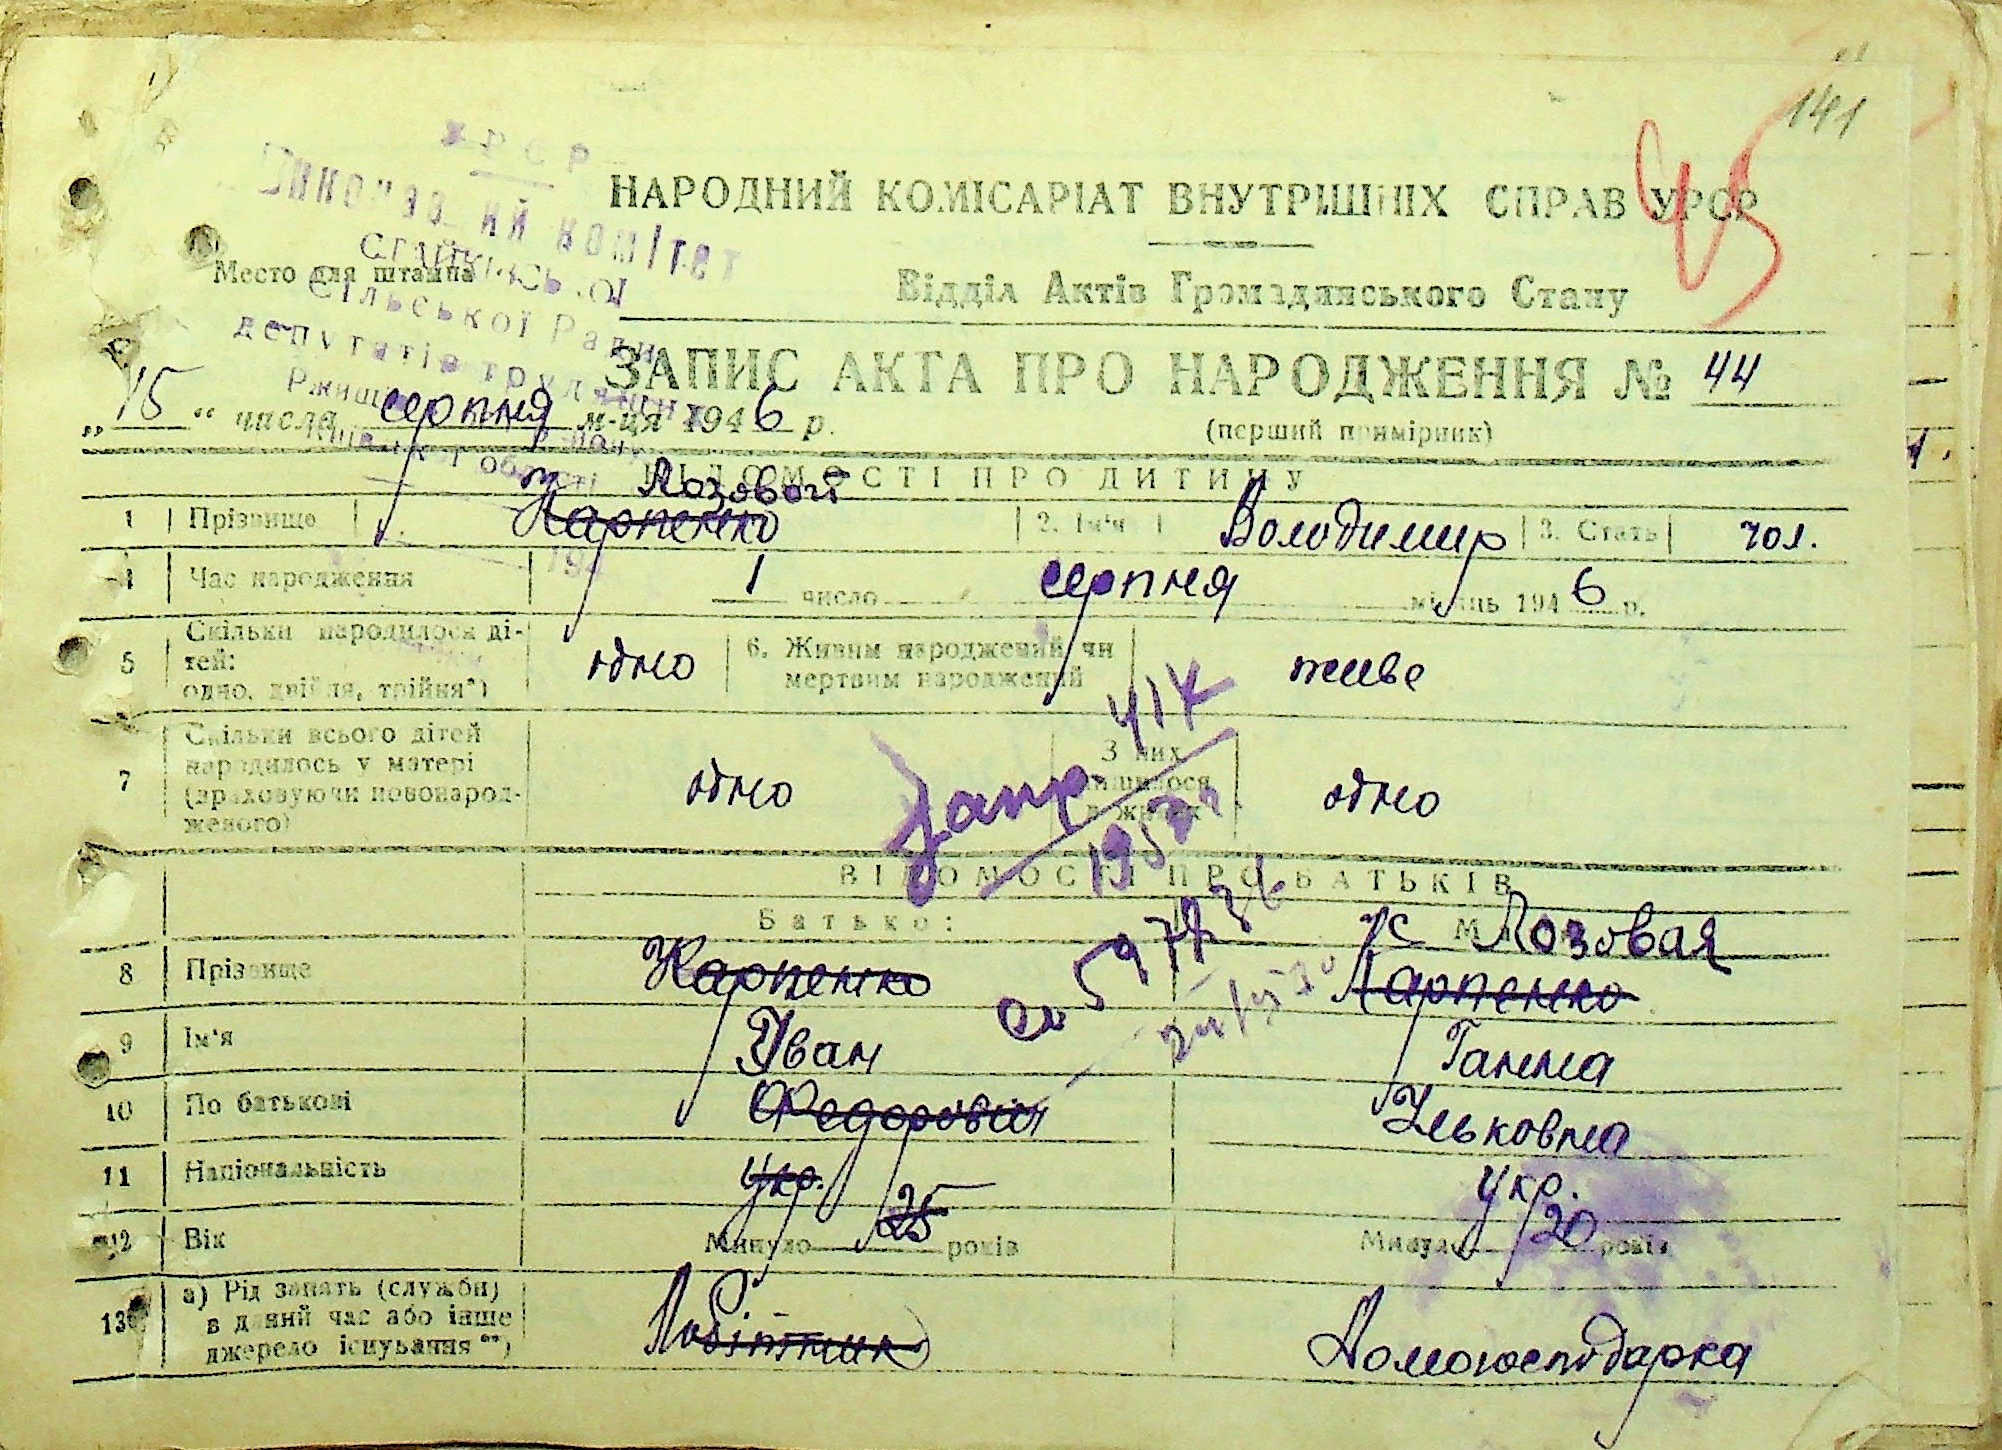 141
45
УРСР
Виконавчий комітет
Стайківської
Сільської Ради
депутатів трудящих
НАРОДНИЙ КОМІСАРІАТ ВНУТРІШНІХ СПРАВ УРСР
Место для штампа
Відділ Актів Громадянського Стану
ЗАПИС АКТА ПРО НАРОДЖЕННЯ № 44
„15“ числа серпня м-ця 1946 р.
(перший примірник)
ВІДОМОСТІ ПРО ДИТИНУ
Лозовой
1 Прізвище Карпенко 2. Ім'я Володимир 3. Стать чол.
4 Час народження 1 число серпня місяць 1946 р.
5 Скільки народилося ді-
тей:
одно, двійня, трійня*)
одно
6. Живим народжений чи
мертвим народжений
живе
7 Скільки всього дітей
народилось у матері
(враховуючи новонарод-
женого)
одно
З них
лишилося
в живих
одно
ВІДОМОСТІ ПРО БАТЬКІВ
Батько:
Лозовая
8 Прізвище Карпенко Карпенко
9 Ім'я Іван Ганна
10 По батькові Федорович Ільковна
11 Національність укр. укр.
12 Вік Минуло 25 років Минуло 20 років
13 а) Рід занять (служби)
в даний час або інше
джерело існування**)
Робітник Домогосподарка